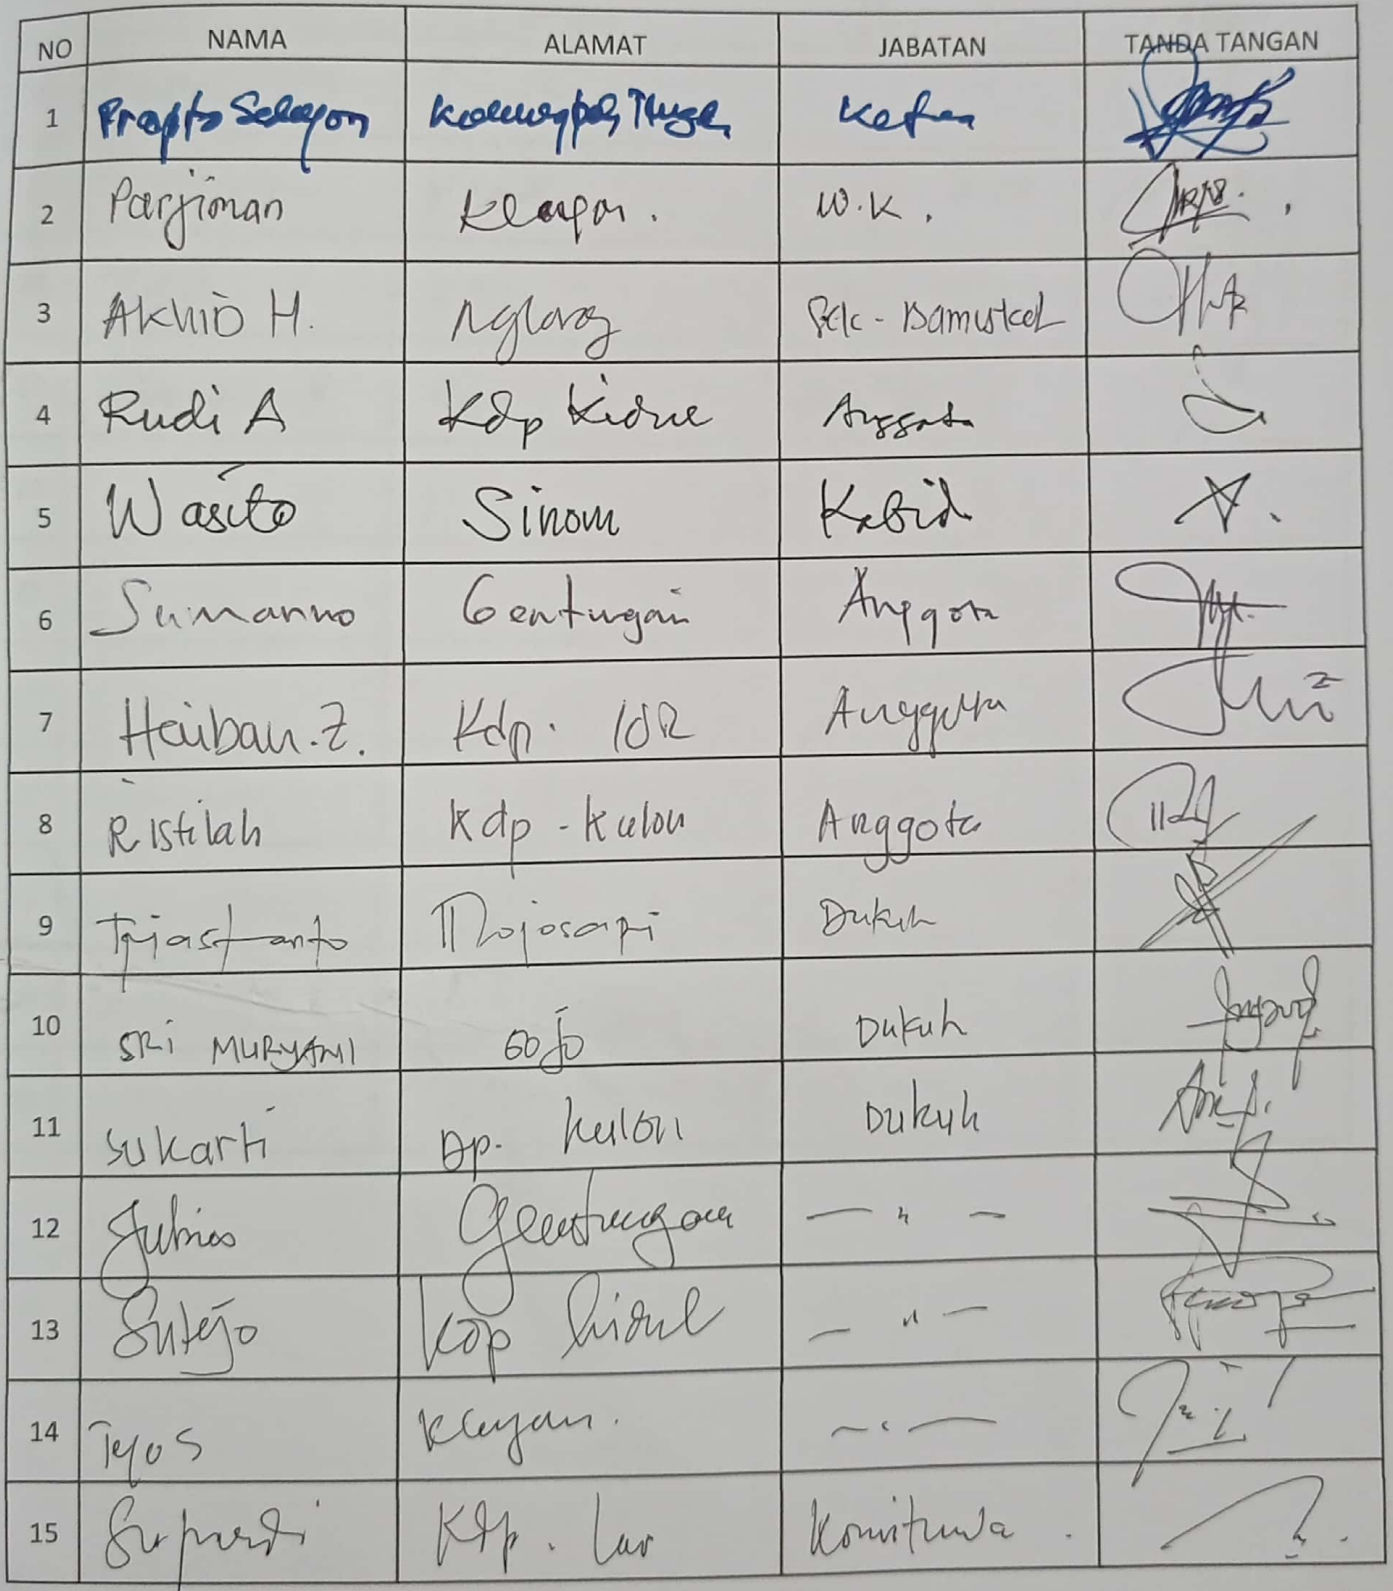 NO NAMA ALAMAT JABATAN TANDA TANGAN
1 Prapto Ketua
2 Parjiman Klayar. W.K.
3 AKHID H. Nglorog Sek - Bamuskal
4 Rudi A Kdp Kidul Anggota
5 Wasito Sinom Kabid
6 Sumarno Gentungan Anggota
7 Haiban.Z. Kdp. Anggota
8 R Istilah Kdp - Kulon Anggota
9 Mojosari Dukuh
10 SRI MURYAMI Gojo Dukuh
11 Sukarti Dp. Kulon Dukuh
12 Gentungan — " —
13 Sutejo Kdp kidul — " —
14 Tejo S Klayar. — " —
15 Supardi Kdp. Lor